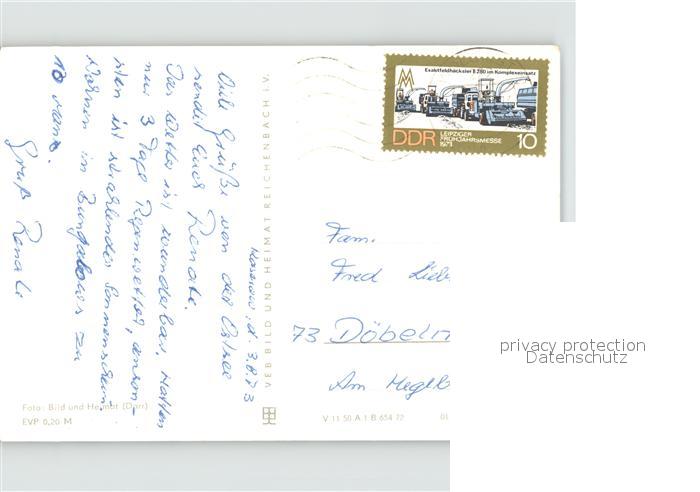 d. 3.8.73
Viele Grüße von der Ostsee
sendet Euch Renate.
Das Wetter ist wunderbar, hatten
nur 3 Tage Regenwetter, anson-
sten ist strahlender Sonnenschein.
Wohnen im Bungalow zu
10 Mann.
Gruß Renate
Foto: Bild und Heimat (Darr)
EVP 0,20 M
VEB BILD UND HEIMAT REICHENBACH V.
Exaktfeldhäcksler E 280 im Komplexeinsatz
DDR LEIPZIGER
FRÜHJAHRSMESSE
1973
10
Fam.
Fred
73 Döbeln
Am
V 11 50 A 1 B 654 72 01
privacy protection
Datenschutz